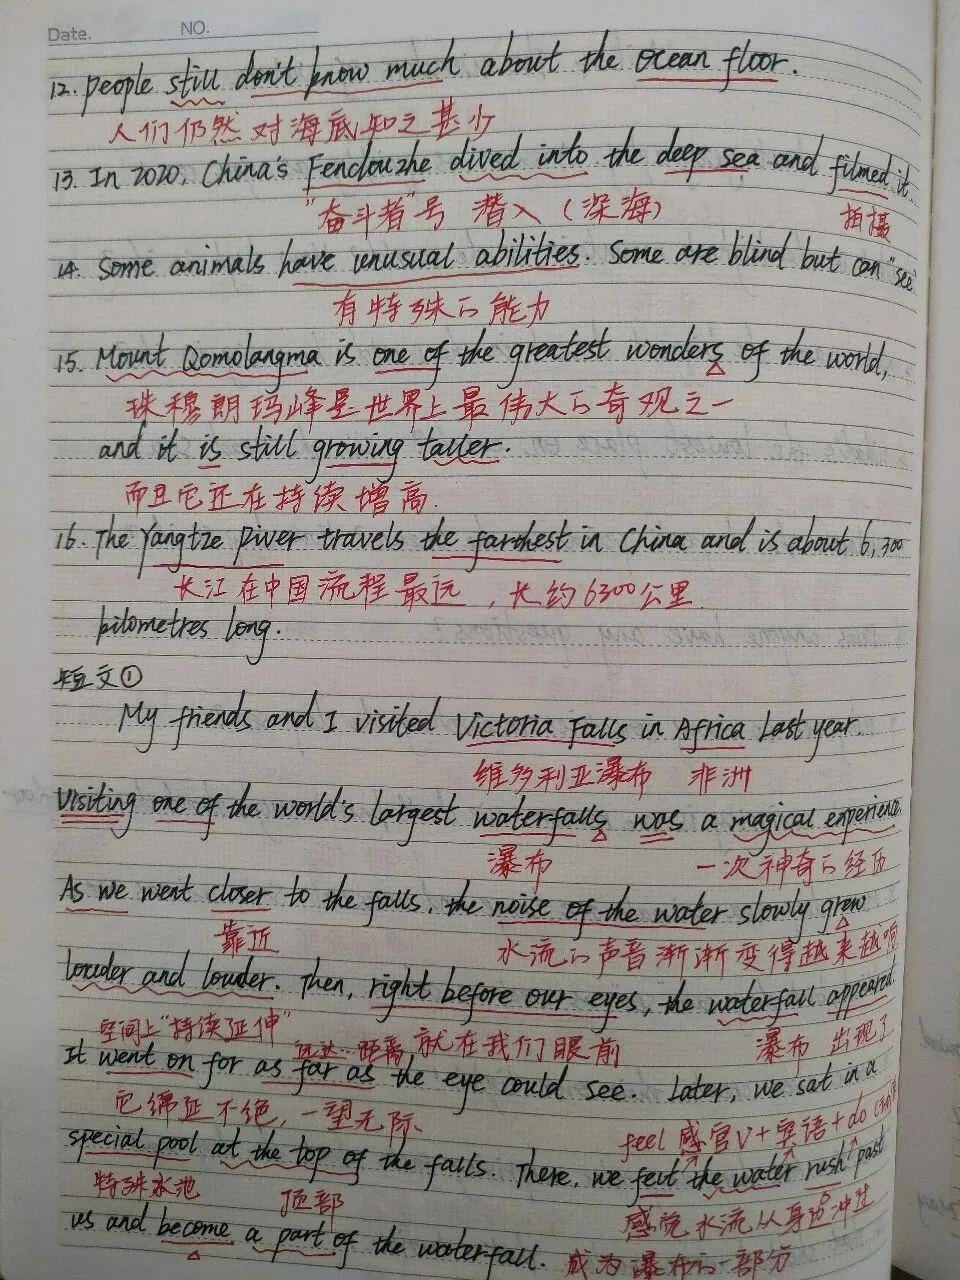 Date. NO.
12. people still don't know much about the ocean floor.
人们仍然对海底知之甚少
13. In 2020, China's Fendouzhe dived into the deep sea and filmed it.
"奋斗者"号 潜入 (深海) 拍摄
14. Some animals have unusual abilities. Some are blind but can "see"
有特殊的能力
15. Mount Qomolangma is one of the greatest wonders of the world,
珠穆朗玛峰是世界上最伟大的奇观之一
and it is still growing taller.
而且它还在持续增高.
16. The Yangtze River travels the farthest in China and is about 6,300
长江在中国流程最远, 长约6300公里
kilometres long.
短文①
My friends and I visited Victoria Falls in Africa last year.
维多利亚瀑布 非洲
Visiting one of the world's largest waterfalls was a magical experience.
瀑布 一次神奇的经历
As we went closer to the falls, the noise of the water slowly grew
靠近 水流的声音渐渐变得越来越响
louder and louder. Then, right before our eyes, the waterfall appeared.
空间上"持续延伸" 远达…距离 就在我们眼前 瀑布 出现了
It went on for as far as the eye could see. Later, we sat in a
它绵延不绝, 一望无际. feel 感官V+宾语+do
special pool at the top of the falls. There, we felt the water rush past
特殊水池 顶部 感觉水流从身边冲过
us and become a part of the waterfall. 成为瀑布的一部分